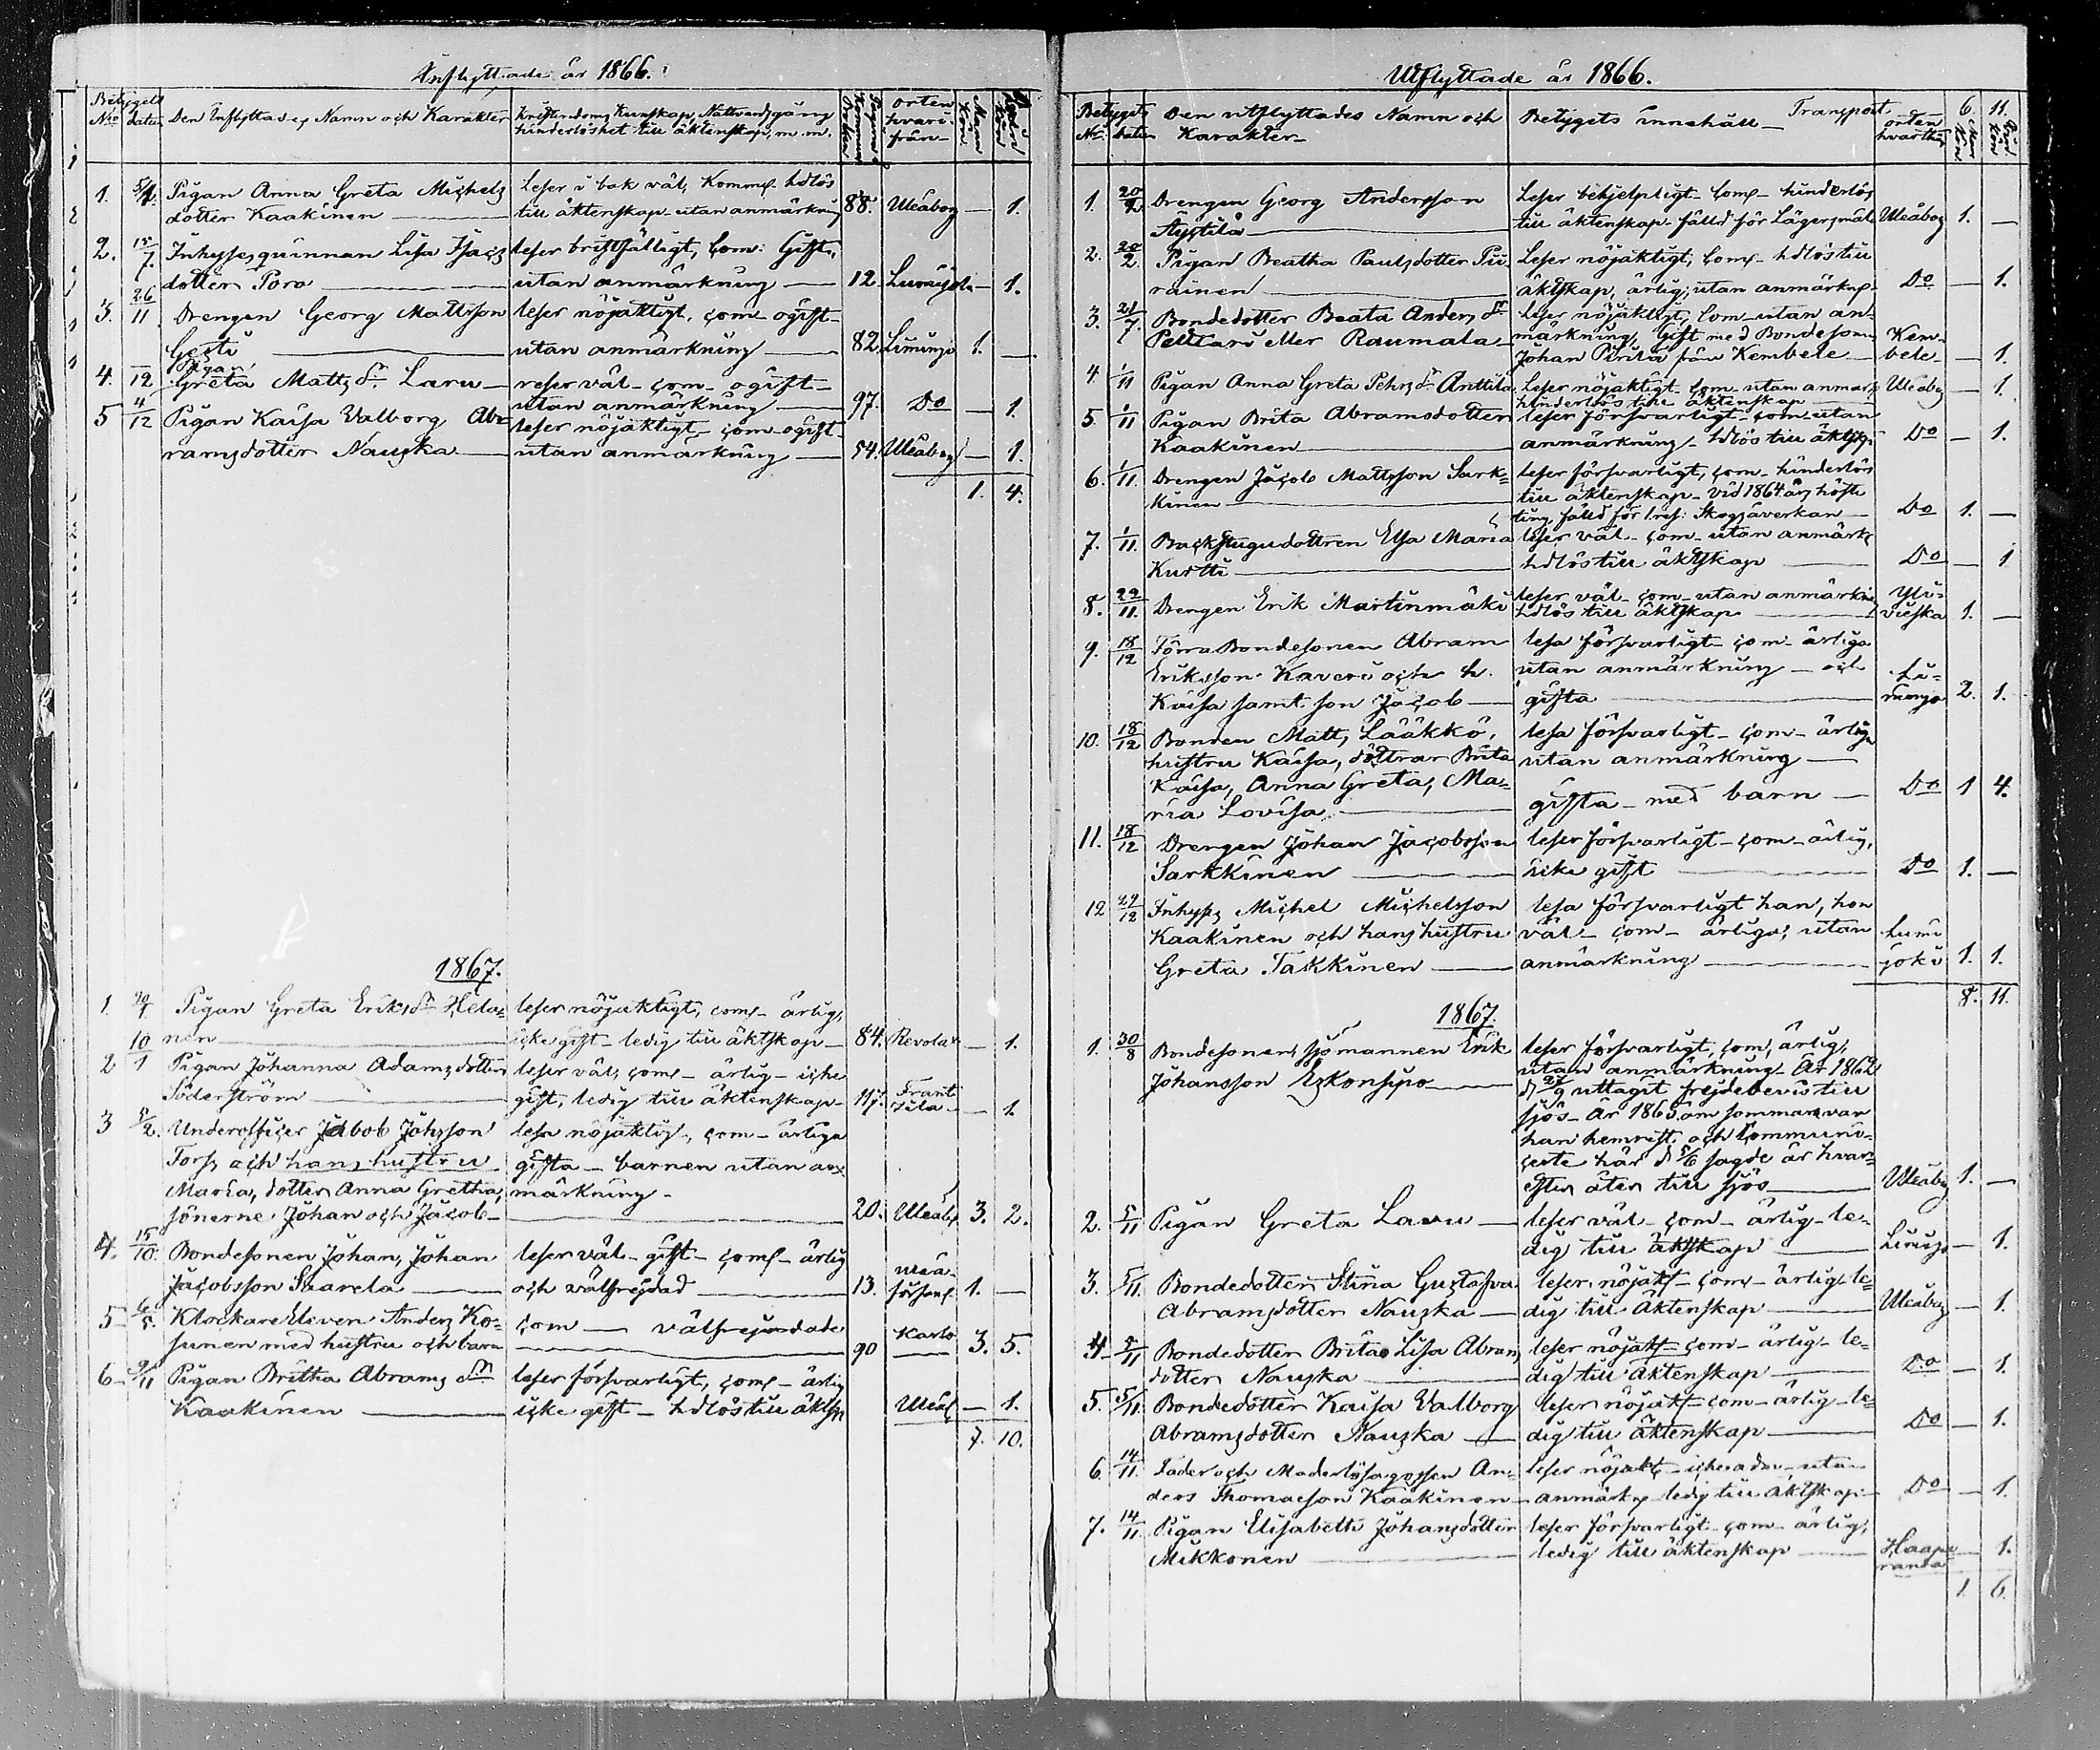 Inflyttade år 1866.
Betygets
No datum Den Inflyttades Namn och Karakter
Kristendoms Kunskap, Nattvardsgång
hinderlöshet till äktenskap, m.m.
orten
hvari-
från
1. 5/4. Pigan Anna Greta Michels leser i bok väl, Komms. hdlös
dotter Kaakinen till äktenskap utan anmärkning 88. Uleåborg — 1.
2. 15/7. Inhyses quinnan Lisa Isacs leser bristfälligt, Com: Gift,
dotter Poro utan anmärkning 12. Lumijoki — 1.
3. 26/11. Drengen Georg Mattsson leser nöjaktigt, com ogift
Gesti utan anmärkning 82. Limingo 1. —
Pigan
4. /12 Greta Matts dr Laru leser väl com ogift
utan anmärkning 97. Do — 1.
5 4/12 Pigan Kaisa Valborg Ab-
leser nöjaktigt com ogift
ramsdotter Nauska utan anmärkning 54. Uleåborg — 1.
1. 4.
1867.
1. Pigan Greta Eriks dr Hela- leser nöjaktigt, com ärlig,
nen icke gift ledig till äktskap 84. Revolax — 1.
2 10/1 Pigan Johanna Adamsdotter leser väl, com ärlig icke
Söderström gift, ledig till äktenskap 117. Frant
sila — 1.
3 5/2. Underofficer Jakob Johsson lesa nöjaktig, com ärliga
Forss och hans hustru gifta barnen utan an-
Maria, dotter Anna Gretha, märkning
sönerne Johan och Jacob 20. Uleåb. 3. 2.
4. 15/10. Bondesonen Johan, Johan leser väl gift com ärlig
Jacobsson Saarela och välfrejdad 13. Uleå-
sockens 1. —
5 6/5. Klockare Eleven Anders Ko- com välfrejdade
sunen med hustru och barn 90 Karlö 3. 5.
6 9/11 Pigan Britha Abrams dr leser försvarligt, com ärlig
Kaakinen icke gift hdlös till äktsp Uleåb — 1.
7. 10.
Utflyttade år 1866.
Betygets
No datum
Den utflyttades Namn och
Karakter
Betygets innehåll Transport
orten
hvarthän
6. 11.
1. 20/2 Drengen Georg Andersson Leser behjelpligt Com hinderlös
till äktenskap fälld för Lägersmål Uleåborg 1. —
2. 20/2. Pigan Beatha Paulsdotter Pii- Leser nöjaktigt, com hdlös till
rainen äktskap, ärlig, utan anmärkng Do — 1.
3. 21/7 Bondedotter Beata Anders dr Leser nöjaktigt, Com utan an-
Pelttari eller Raumala märkning, Gift med Bondeson
Johan Piirila från Kembele Kem-
bele — 1.
4. 1/11 Pigan Anna Greta Pehrs dr Anttila Leser nöjaktigt com utan anmärk
hinderlös till äktenskap Uleåborg — 1.
5. 1/11 Pigan Brita Abramsdotter leser försvarligt com utan
Kaakinen anmärkning hdlös till äktsk. Do — 1.
6. 1/11. Drengen Jacob Mattsson Sark- leser försvarligt, com hinderlös
kinen till äktenskap vid 1864 års höste
ting fälld för 1 resa Skogsåverkan Do 1. —
7. 1/11. Backstugudottren Elsa Maria leser väl com utan anmärk
Kurtti hdlös till äktskap Do — 1
8. 22/11. Drengen Erik Martinmäki leser väl com utan anmärkn
hdlös till äktskap Yli-
vieska 1. —
9. 18/12 Förra Bondesonen Abram lesa försvarligt com ärliga
Eriksson Kaveri och h. utan anmärkning och
Kaisa samt son Jacob gifta Li-
mingo 2. 1.
10. 18/12 Bonden Matts Lääkkö, lesa försvarligt com ärliga
hustru Kaisa, döttrar Brita utan anmärkning
Kaisa, Anna Greta, Ma-
ria Lovisa gifta med barn Do 1 4.
11. 18/12 Drengen Johan Jacobsson leser försvarligt com ärlig,
Sarkkinen icke gift Do 1. —
12 29/12 Inhyses Michel Michelsson lesa försvarligt han, hon
Kaakinen och hans hustru väl com ärliga, utan
Greta Takkinen anmärkning Lumi
joki 1. 1.
8. 11.
1867.
1. 30/8 Bondesonen, sjömannen Erik leser försvarligt, com, ärlig,
Johansson Eskonsipo utan anmärkning. År 1862
d 27/9 uttagit frejdebevis till
sjös År 1865 om sommaren var
han hemrest och Communi-
certe här d 5/6 sagde år hvar-
efter åter till sjös Uleåborg 1. —
2. 5/11 Pigan Greta Laru leser väl com ärlig le-
dig till äktskap Limingo — 1.
3. 5/11 Bondedotter Stina Gustafva leser nöjakt com ärlig le-
Abramsdotter Nauska dig till äktenskap Uleåborg — 1.
4 5/11 Bondedotter Brita Lisa Abrams leser nöjakt com ärlig le-
dotter Nauska dig till äktenskap Do — 1.
5. 5/11. Bondedotter Kaisa Valborg leser nöjakt com ärlig le-
Abramsdotter Nauska dig till äktenskap Do — 1.
6. 14/11. Fader och Moderlösa gossen An- leser nöjakt utan
ders Thomasson Kaakinen anmärkng ledig till äktskap Do — 1.
7. 14/11. Pigan Elisabeth Johansdotter leser försvarligt com ärlig,
Mikkonen ledig till äktenskap Haapa
randa — 1.
1. 6.